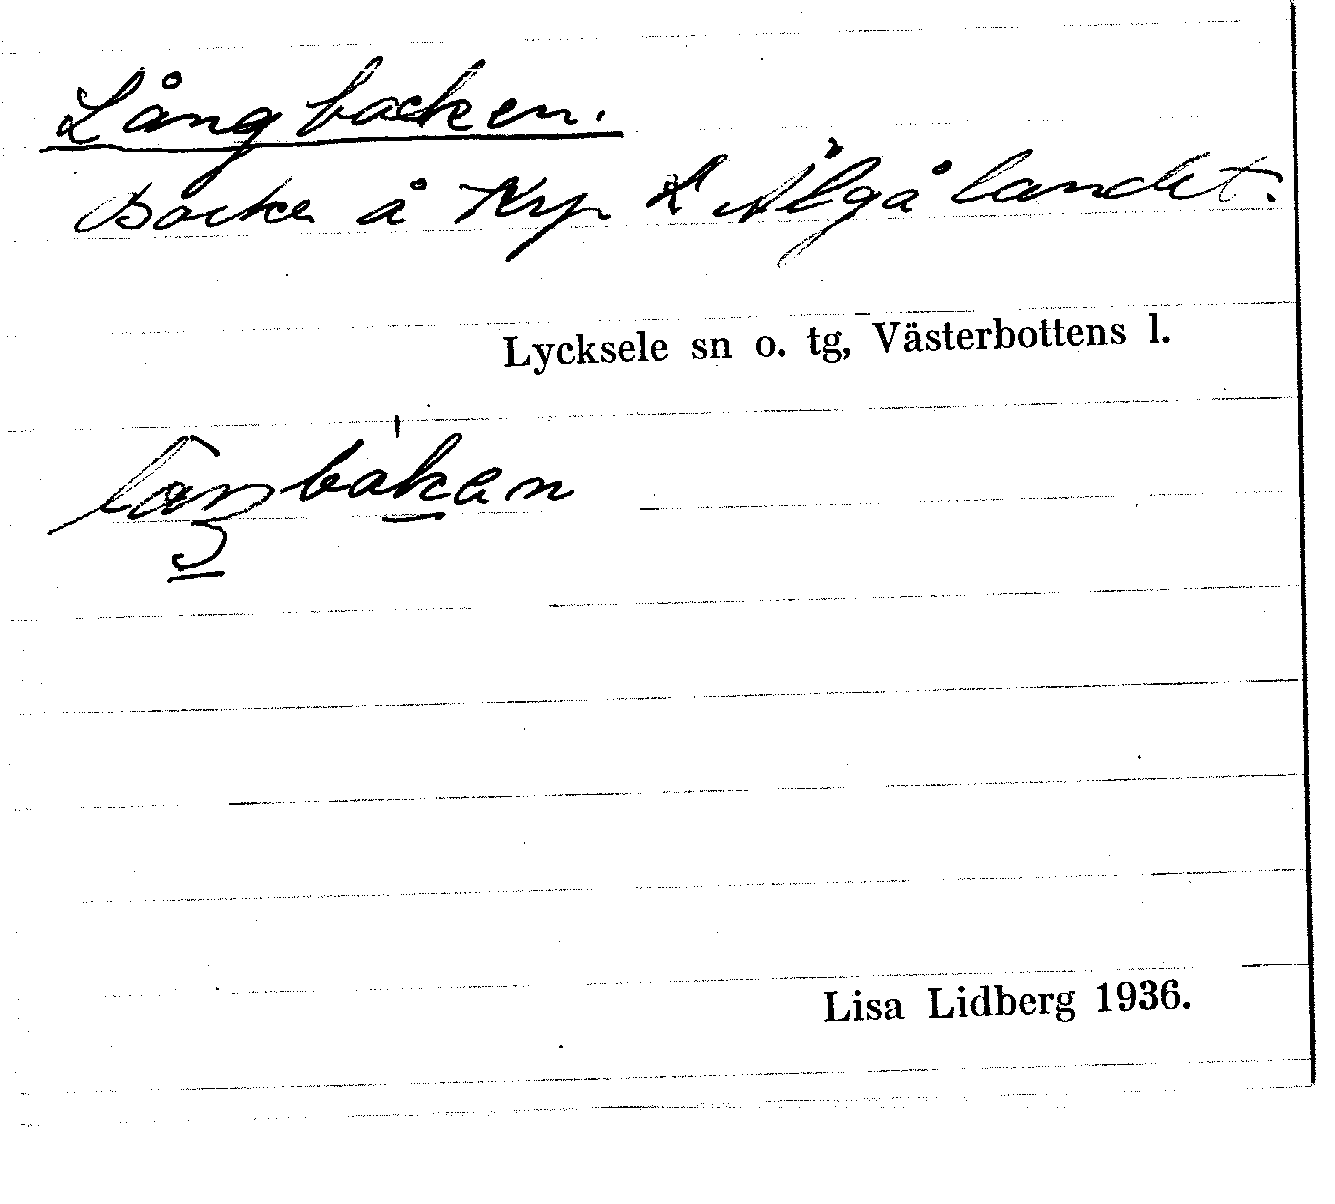 Långbacken.
Backe å Krp L Älgålandet.
Lycksele sn o. tg, Västerbottens l.
Lisa Lidberg 1936.